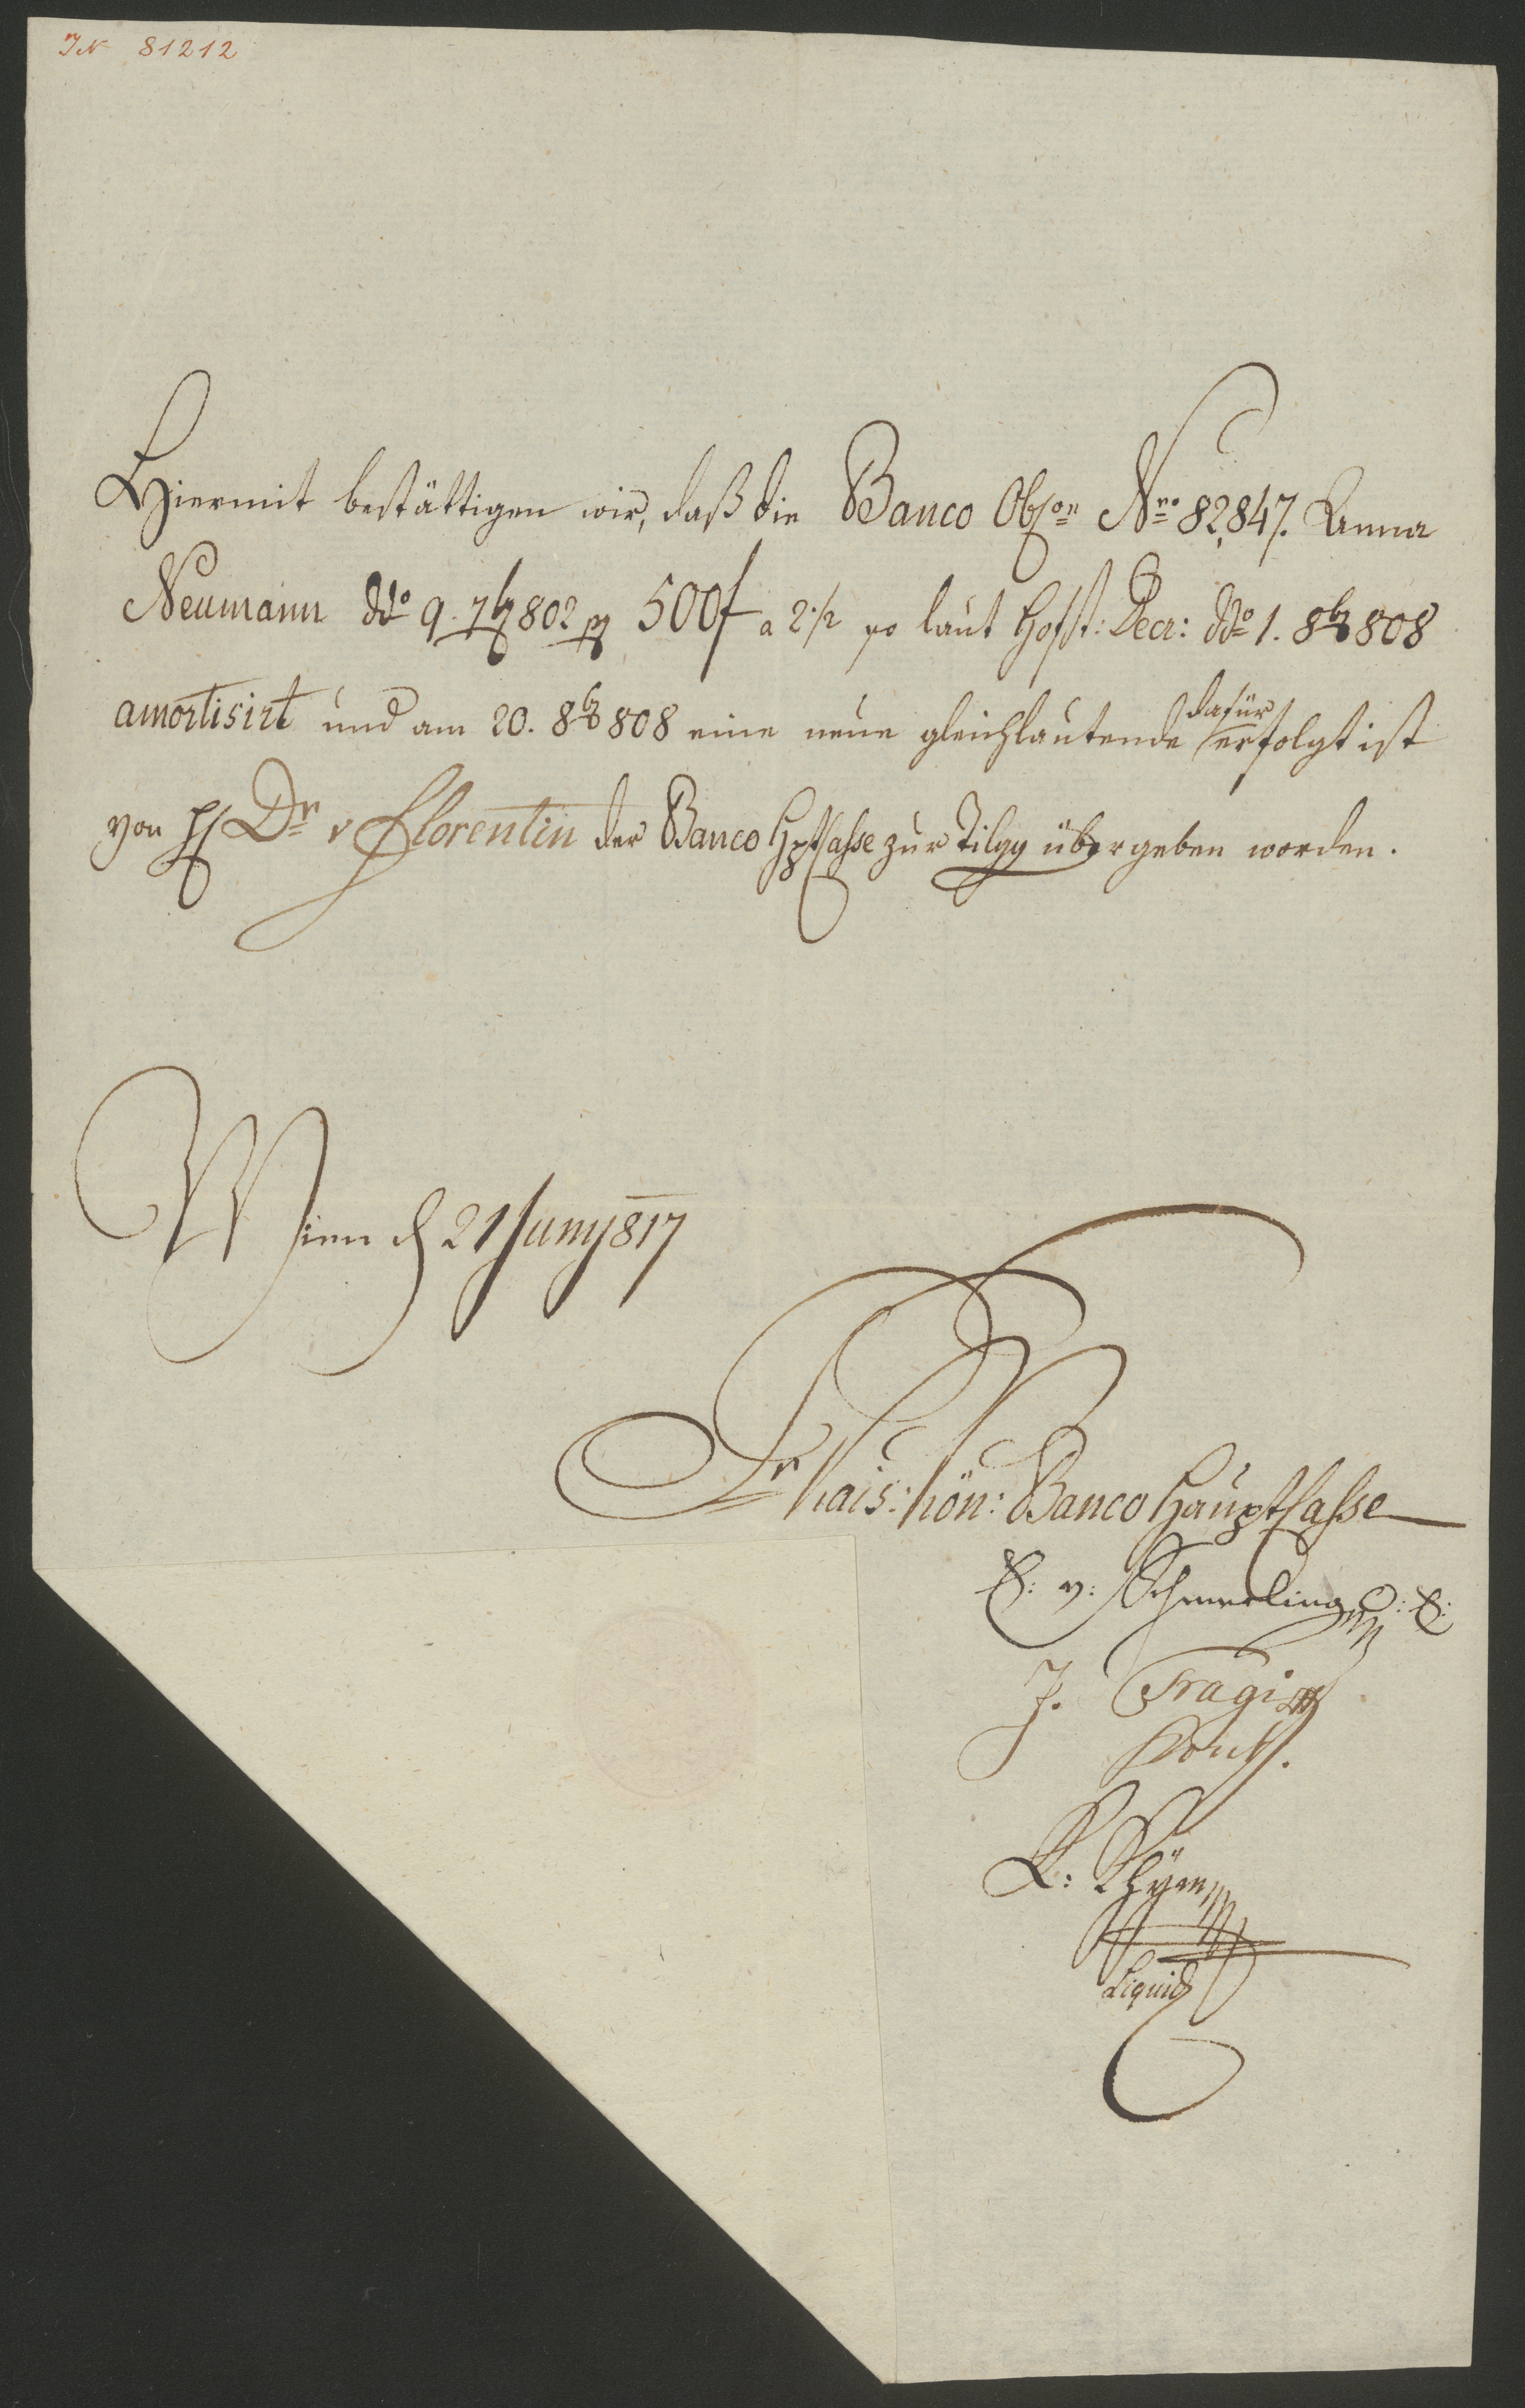 IN 81212
Hiermit bestättigen wir, daß die Banco Obson Nro 82,847. Anna
Neumann ddo 9. 7b 802 pr 500f a 2 1/2 po laut Hofst: Decr: ddo 1. 8b 808
amortisirt und am 20. 8b 808 eine neue gleichlautende dafür erfolgt ist
von H Dr v Florentin der Banco Hptcasse zur Tilgg übergeben worden.
Wien d 21 Juny 817
Kais: kön: Banco Hauptcasse
v: Schmerling
J.
Liquid